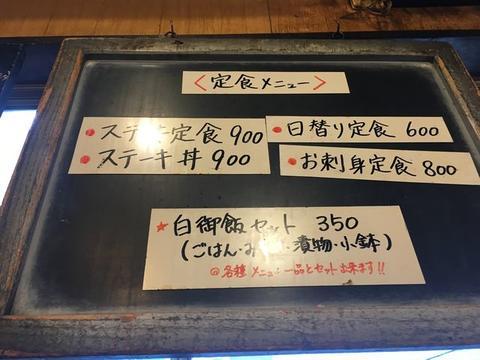 ＜定食メニュー＞
ステーキ定食 900
ステーキ丼 900
日替り定食 600
お刺身定食 800
★白御飯セット 350
(ごはん・み・漬物・小鉢)
@各種メニュー一品とセット出来ます!!